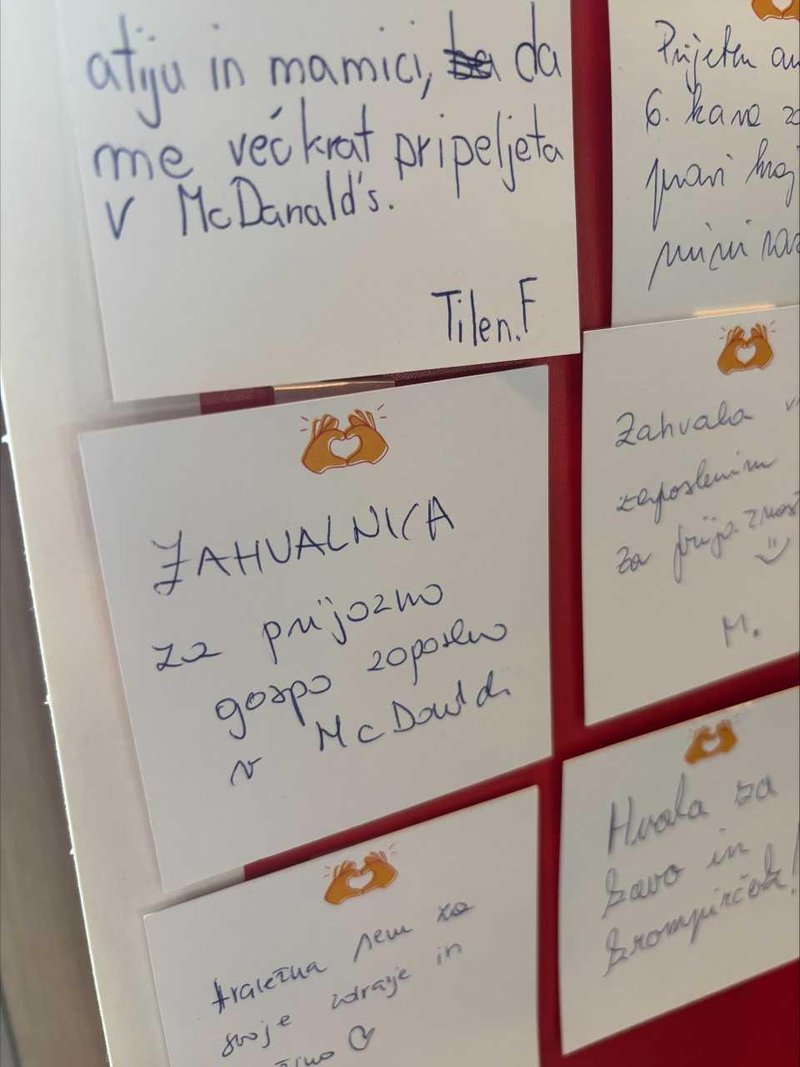 atiju in mamici, da
me večkrat pripeljeta
v McDanald's.
Tilen.F
Prijeten
6. kava
pravi
mini
ZAHVALNICA
za prijozno
gospo zoposleno
v McDonald
Zahvala
zaposlenim
za prijaznost
M.
Hvala za
kavo in
krompirček!
Hvaležna sem za
svoje zdravje in